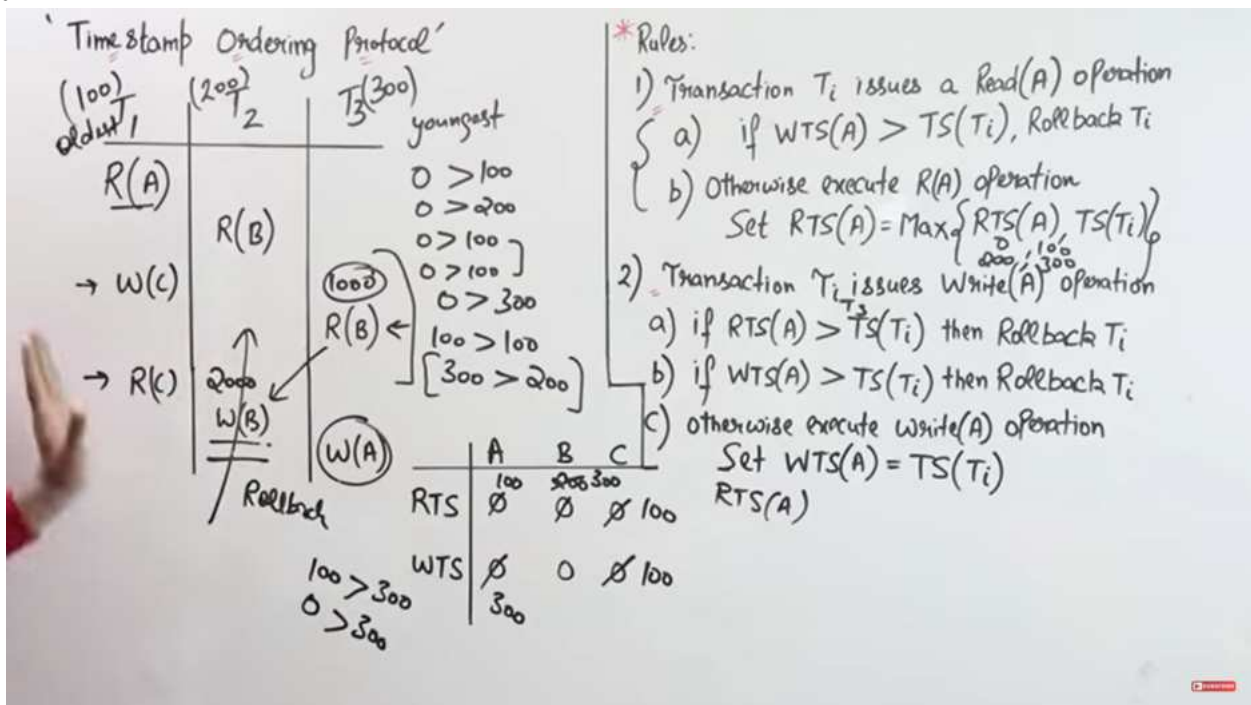 'Timestamp Ordering Protocol'
(100) (200) T3(300)
oldest T1 T2 youngest
R(A) 0 > 100
0 > 200
R(B) 0 > 100
→ W(C) 1000 0 > 100
0 > 300
R(B) ← 100 > 100
→ R(C) 2000 [300 > 200]
W(B)
W(A)
Rollback
100 > 300
0 > 300
A B C
100 200 300
RTS 0 0 0 100
WTS 0 0 0 100
300
*Rules:
1) Transaction Ti issues a Read(A) operation
a) if WTS(A) > TS(Ti), Rollback Ti
b) Otherwise execute R(A) operation
Set RTS(A) = Max{RTS(A), TS(Ti)}
0, 100
200, 300
2) Transaction Ti issues Write(A) operation
a) if RTS(A) > TS(Ti) then Rollback Ti
b) if WTS(A) > TS(Ti) then Rollback Ti
c) otherwise execute write(A) operation
Set WTS(A) = TS(Ti)
RTS(A)